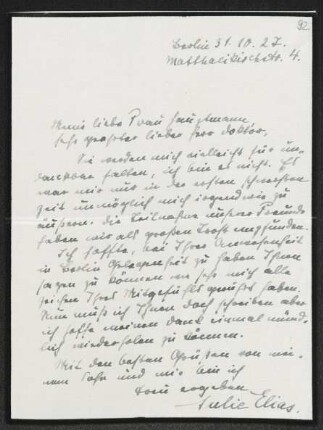 92
Berlin 31.10.27.
Matthäikirchstr. 4.
Meine liebe Frau Hauptmann
sehr geehrter lieber Herr Doktor,
Sie werden mich vielleicht für un-
dankbar halten, ich bin es nicht. Es
war mir nur in der ersten schwersten
Zeit unmöglich mich irgendwie zu
äußern. Die Teilnahme unserer Freunde
haben wir als großen Trost empfunden.
Ich hoffte, bei Ihrer Anwesenheit
in Berlin Gelegenheit zu haben Ihnen
sagen zu können wie sehr mich alle
Zeichen Ihres Mitgefühls gerührt haben.
Nun muß ich Ihnen doch schreiben aber
ich hoffe meinen Dank einmal münd-
lich wiederholen zu können.
Mit den besten Grüßen von mei-
nem Sohn und mir bin ich
Ihre ergebene
Julie Elias.